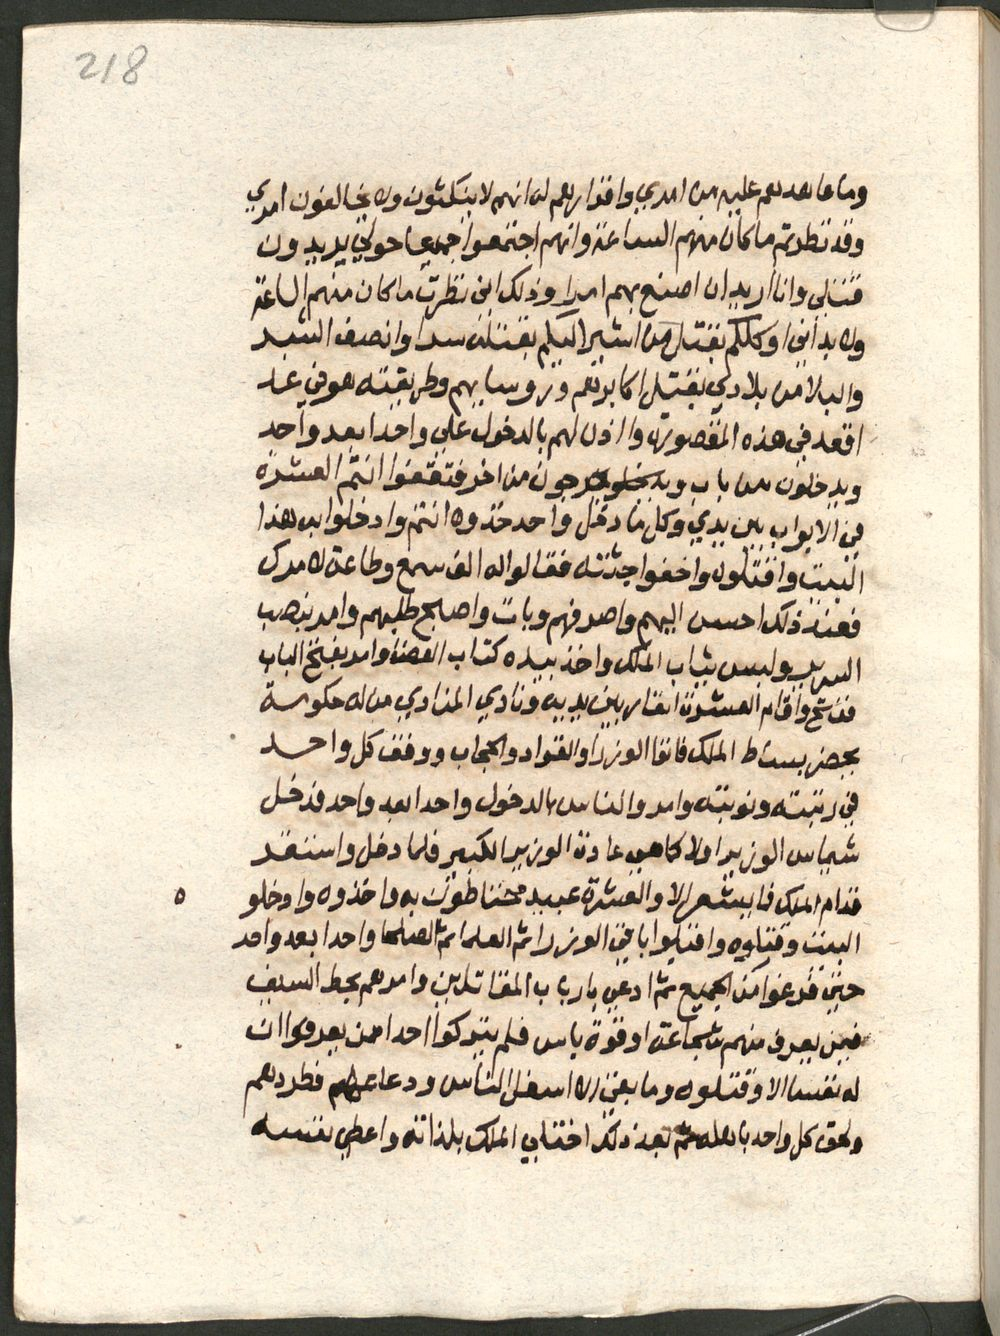 218
وما عاهدهم عليه من امري واقرارهم له انهم لا ينكثون ولا يخالفون امري
وقد نظرتم ما كان منهم الساعة وانهم اجتمعوا جميعا حولي يريدون
قتلي وانا اريد ان اصنع بهم امرا وذلك اني نظرت ما كان منهم الساعة
ولا بد اني اوكلكم بقتل من اشير اليكم بقتله سرا وانصف الشد
والبلا من بلادي بقتل اكابرهم وروسايهم وطريقته هو في غد
اقعد في هذه المقصورة واذن لهم بالدخول علي واحدا بعد واحد
ويدخلون من باب ويخرجون من اخر فتقفوا انتم العشرة
في الابواب بين يدي وكل ما دخل واحد خذوه انتم وادخلوا به هذا
البيت واقتلوه واخفوا جثته فقالوا له الف سمع وطاعة لامرك
فعند ذلك احسن اليهم واصرفهم وبات واصبح طلبهم وامر بنصب
السرير ولبس ثياب الملك واخذ بيده كتاب القضا وامر بفتح الباب
ففتح واقام العشرة انفار بين يديه ونادي المنادي من له حكومة
يحضر بساط الملك فاتفا الوزرا والقواد والحجاب ووقف كل واحد
في رتبته ونوبته وامر والناس بالدخول واحدا بعد واحد فدخل
شيماس الوزير اولا كما هي عادة الوزير الكبير فلما دخل واستقر
قدام الملك فا يشعر الا والعشرة عبيد محتاطون به واخذوه وادخلو
البيت وقتلوه واقبلوا باقي الوزرا ثم العلما ثم الصلحا واحدا بعد واحد
حتي فرغوا من الجميع ثم ادعي بارباب المقاتلين وامرهم بحط السيف
فيمن يعرف منهم شجاعة او قوة باس فلم يتركوا احدا من يعرفوا ان
له نفسا الا وقتلوه وما بقي الا اسفل الناس ورعاعهم فطردهم
ولحق كل واحد باهله ثم بعد ذلك اختلي الملك بلذاته واعطي نفسه